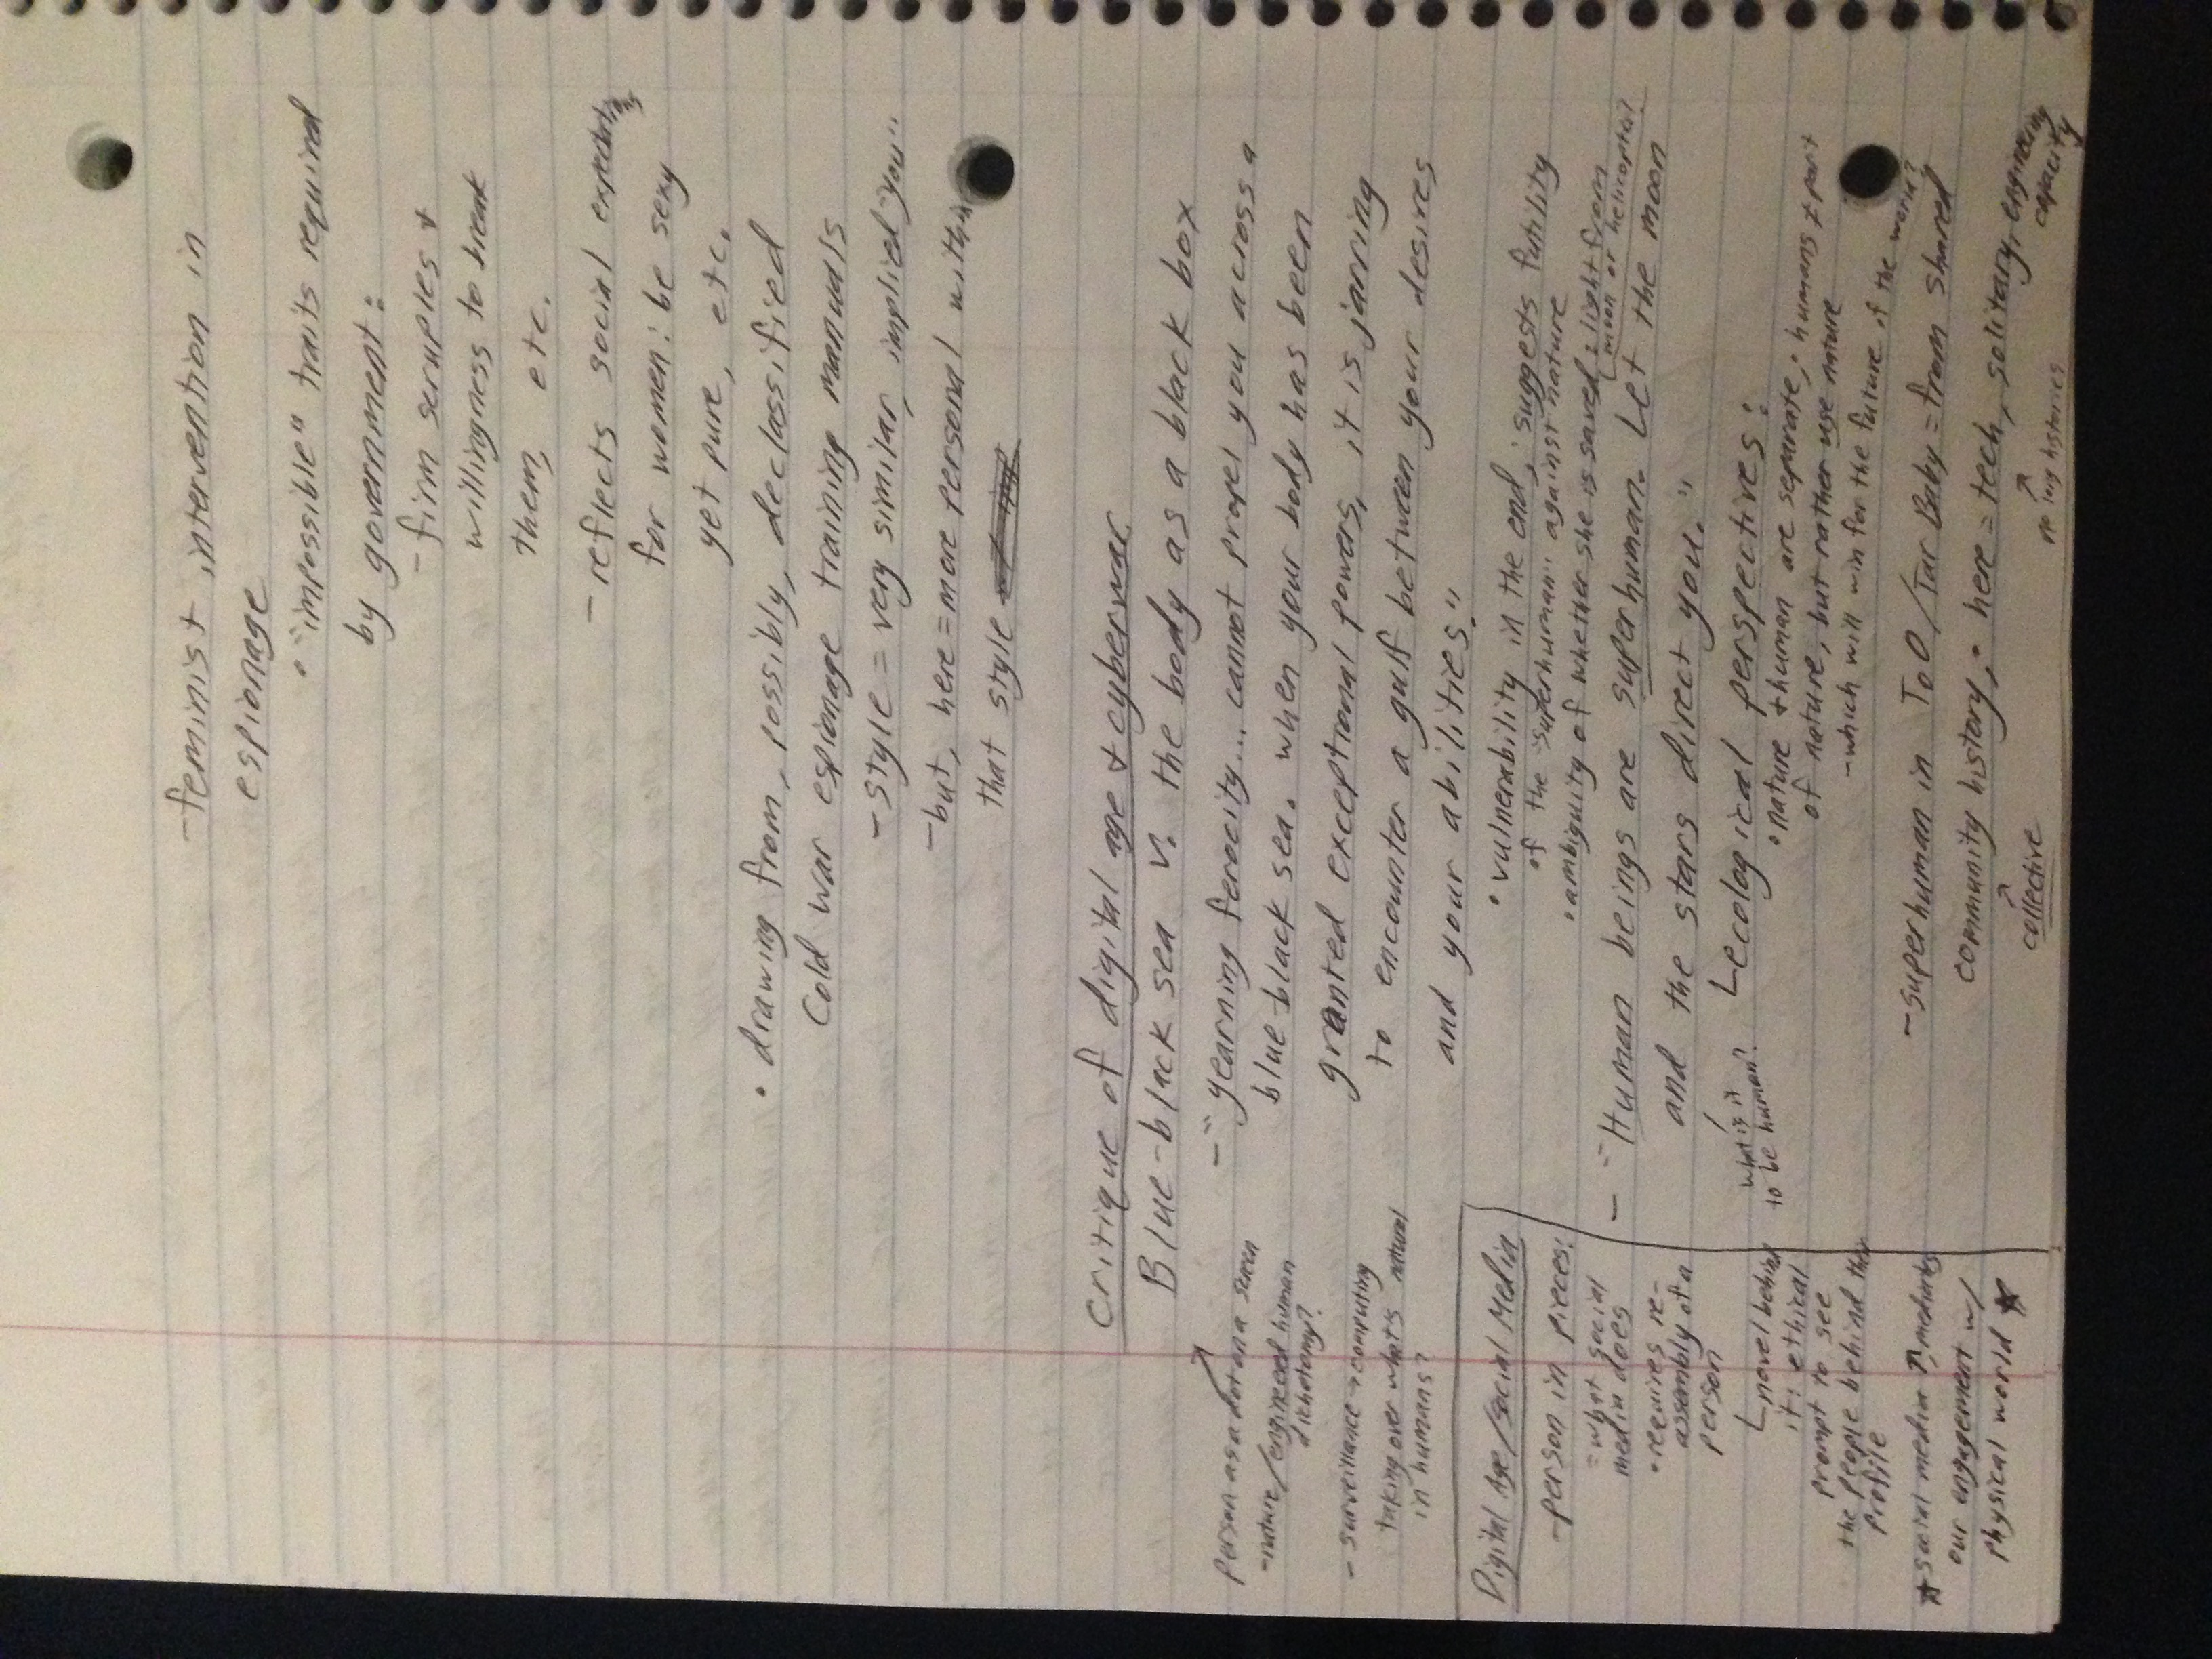 - feminist intervention in
espionage
• "impossible" traits required
by government:
- firm scruples +
willingness to break
them, etc.
- reflects social
for women: be sexy
yet pure, etc.
• drawing from, possibly, declassified
Cold war espionage training manuals
- style = very similar, implied "you"
- but, here = more personal within
that style
critique of digital age + cyberwar
Blue-black sea v. the body as a black box
- "yearning ferocity... cannot propel you across a
blue-black sea. when your body has been
granted exceptional powers, it is jarring
to encounter a gulf between your desires
and your abilities."
• vulnerability in the end, suggests futility
of the "superhuman" against nature
• ambiguity of whether she is saved: light from
moon or helicopter?
- "Human beings are superhuman. Let the moon
and the stars direct you."
ecological perspectives:
what is it
to be human?
• nature + human are separate, • humans + part
of nature, but rather use nature
- which will win for the future of the world?
- superhuman in ToO/Tar Baby = from shared
community history, • here = tech, solitary, engineering
capacity
collective
no long histories
Person as a dot on a screen
- nature/engineered human
dichotomy?
- surveillance + computing
taking over what's natural
in humans?
Digital Age/Social Media
- person in pieces:
= what social
media does
• requires re-
assembly of a
person
novel behind
it: ethical
prompt to see
the people behind the
profile
* social media mediates
our engagement w/
physical world *